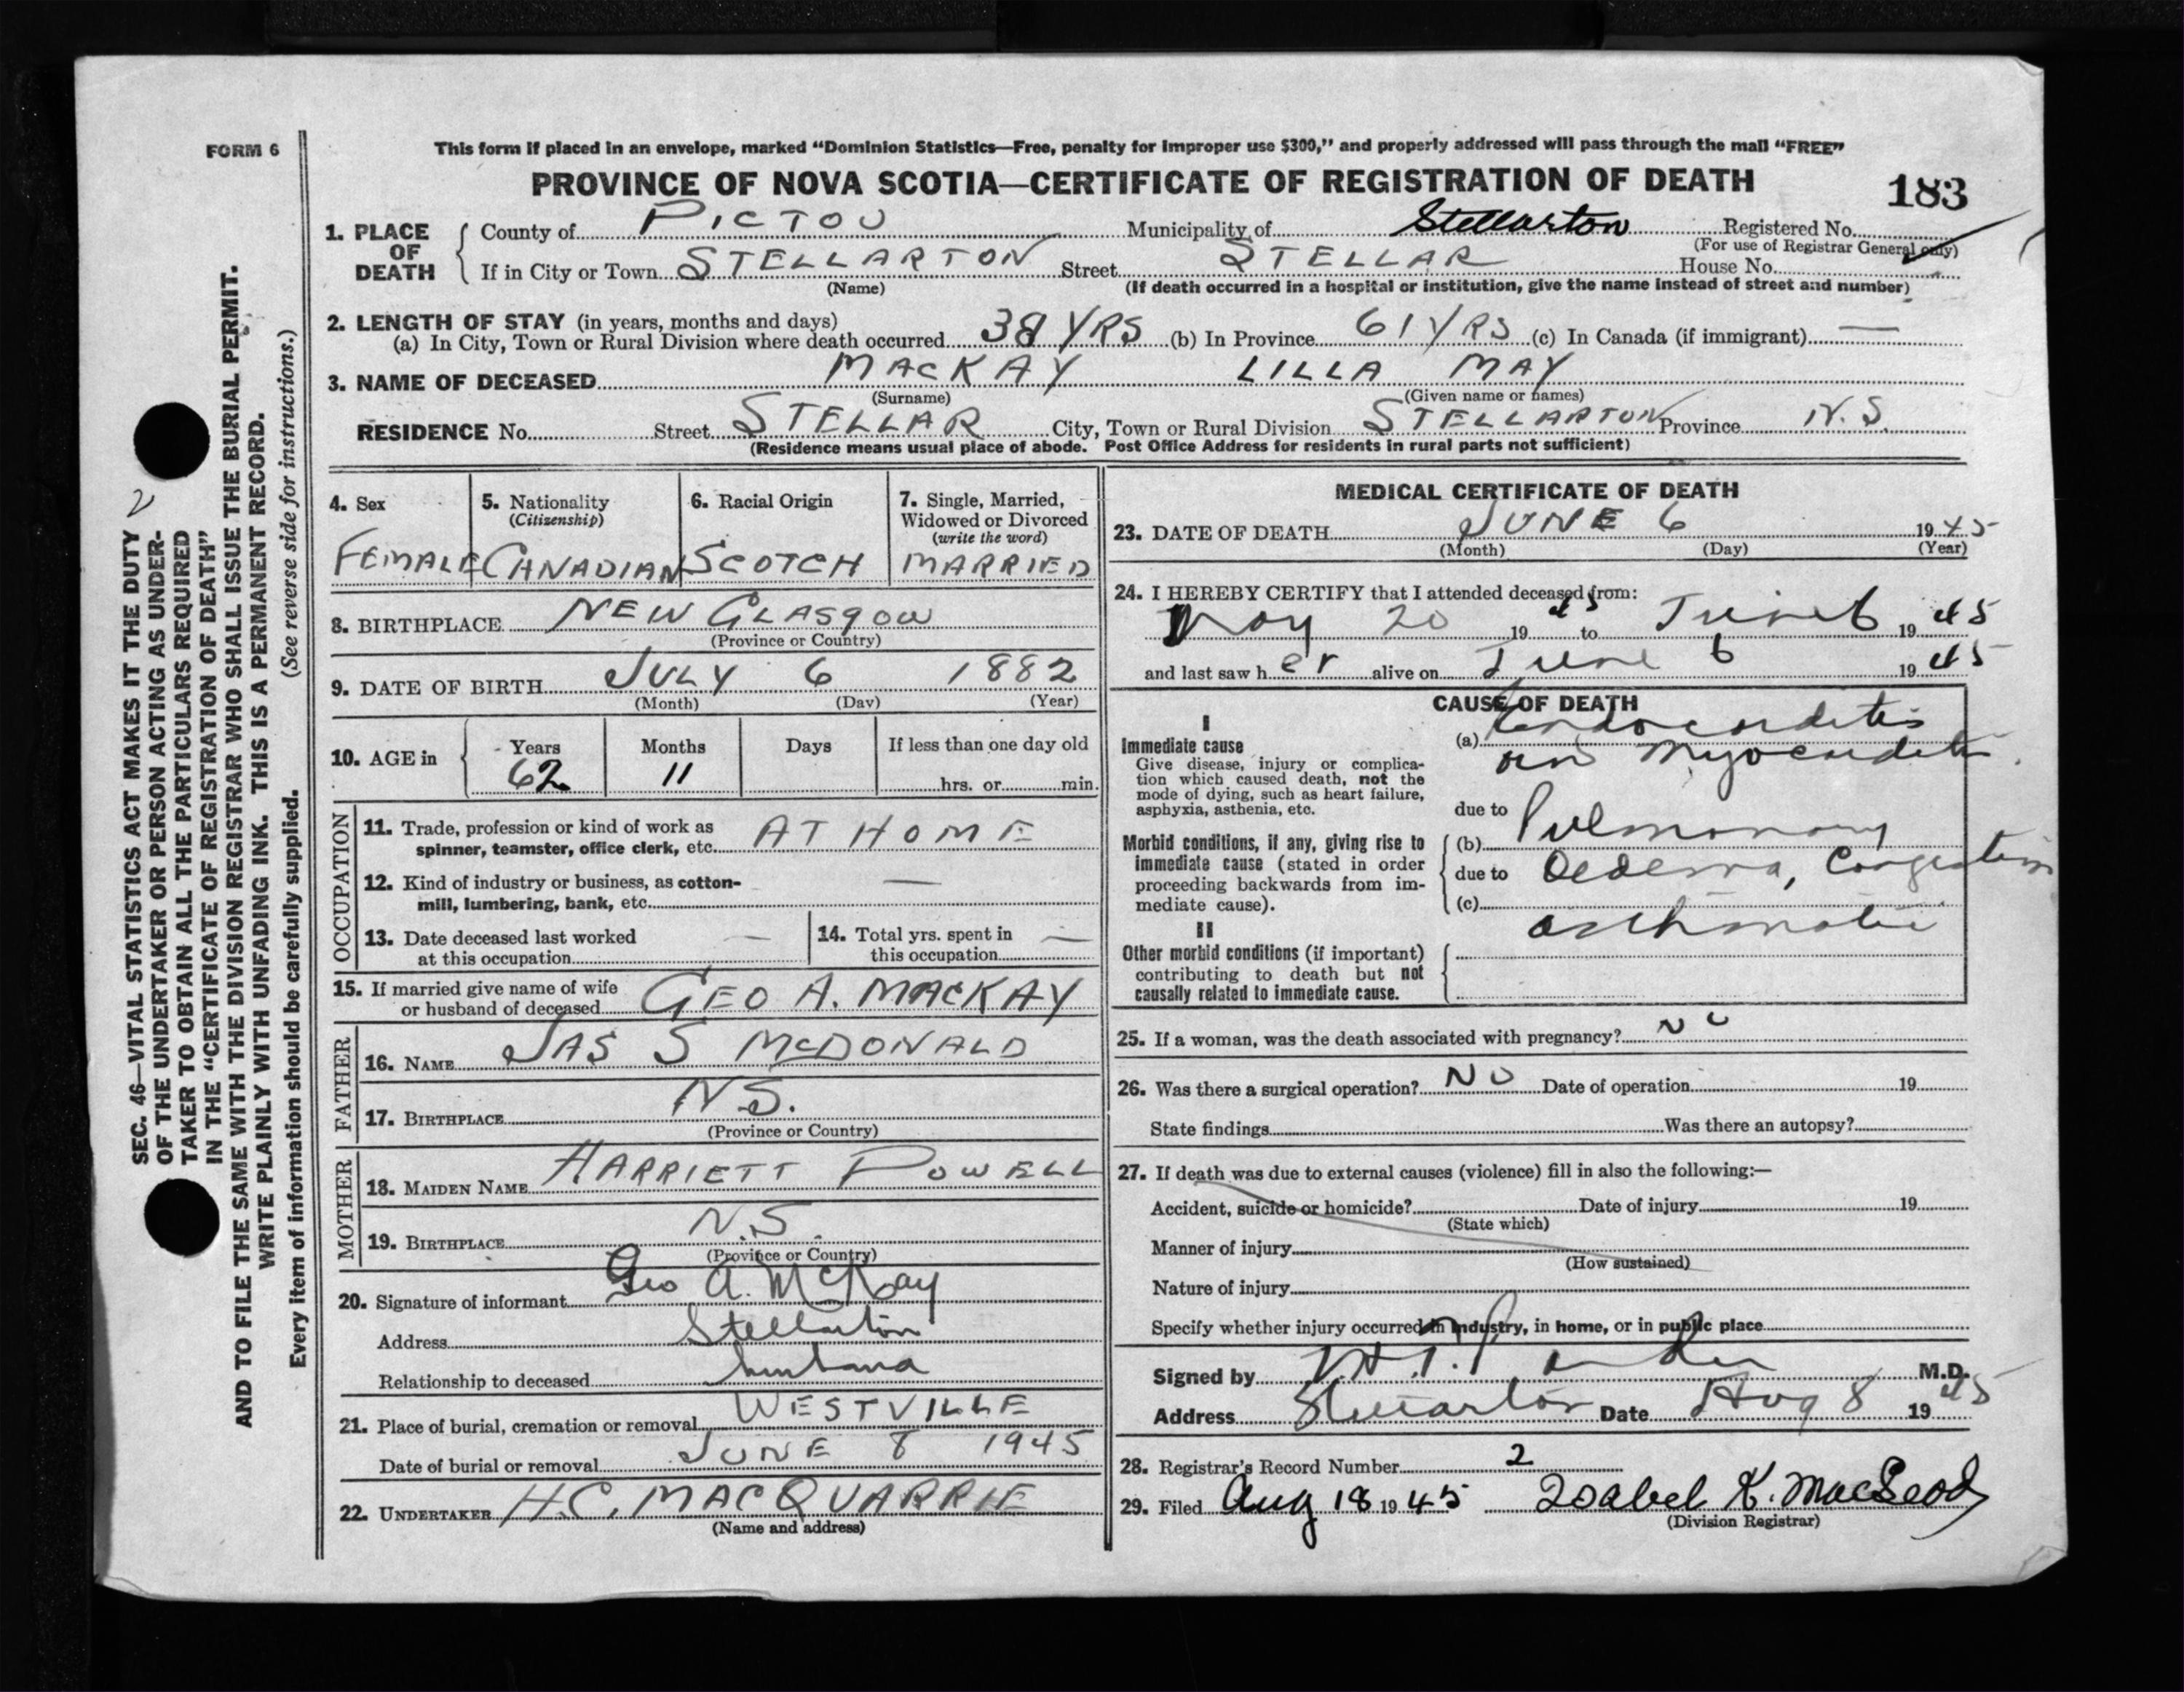 FORM 6
This form if placed in an envelope, marked “Dominion Statistics—Free, penalty for improper use $300,” and properly addressed will pass through the mail “FREE”
PROVINCE OF NOVA SCOTIA—CERTIFICATE OF REGISTRATION OF DEATH
183
1. PLACE OF DEATH
County of PICTOU Municipality of Stellarton Registered No.
(For use of Registrar General only)
If in City or Town STELLARTON Street STELLAR House No.
(Name) (If death occurred in a hospital or institution, give the name instead of street and number)
2. LENGTH OF STAY (in years, months and days)
(a) In City, Town or Rural Division where death occurred 38 YRS (b) In Province 61 YRS (c) In Canada (if immigrant) —
3. NAME OF DECEASED MACKAY LILLA MAY
(Surname) (Given name or names)
RESIDENCE No. Street STELLAR City, Town or Rural Division STELLARTON Province N.S.
(Residence means usual place of abode. Post Office Address for residents in rural parts not sufficient)
4. Sex
FEMALE
5. Nationality
(Citizenship)
CANADIAN
6. Racial Origin
SCOTCH
7. Single, Married,
Widowed or Divorced
(write the word)
MARRIED
8. BIRTHPLACE NEW GLASGOW
(Province or Country)
9. DATE OF BIRTH JULY 6 1882
(Month) (Day) (Year)
10. AGE in
Years Months Days If less than one day old
62 11 hrs. or min.
OCCUPATION
11. Trade, profession or kind of work as
spinner, teamster, office clerk, etc. AT HOME
12. Kind of industry or business, as cotton-
mill, lumbering, bank, etc. —
13. Date deceased last worked
at this occupation —
14. Total yrs. spent in
this occupation —
15. If married give name of wife
or husband of deceased GEO A. MACKAY
FATHER
16. NAME JAS S MCDONALD
17. BIRTHPLACE N.S.
(Province or Country)
MOTHER
18. MAIDEN NAME HARRIETT POWELL
19. BIRTHPLACE N.S.
(Province or Country)
20. Signature of informant Geo A. McKay
Address Stellarton
Relationship to deceased husband
21. Place of burial, cremation or removal WESTVILLE
Date of burial or removal JUNE 8 1945
22. UNDERTAKER H.C. MACQUARRIE
(Name and address)
MEDICAL CERTIFICATE OF DEATH
23. DATE OF DEATH JUNE 6 1945
(Month) (Day) (Year)
24. I HEREBY CERTIFY that I attended deceased from:
May 20 1945 to June 6 1945
and last saw her alive on June 6 1945
CAUSE OF DEATH
I
Immediate cause
Give disease, injury or complica-
tion which caused death, not the
mode of dying, such as heart failure,
asphyxia, asthenia, etc.
(a) Endocarditis
and Myocarditis
due to
Morbid conditions, if any, giving rise to
immediate cause (stated in order
proceeding backwards from im-
mediate cause).
(b) Pulmonary
due to Oedema, Congestion
(c)
asthmatic
II
Other morbid conditions (if important)
contributing to death but not
causally related to immediate cause.
25. If a woman, was the death associated with pregnancy? No
26. Was there a surgical operation? No Date of operation 19
State findings Was there an autopsy?
27. If death was due to external causes (violence) fill in also the following:—
Accident, suicide or homicide? Date of injury 19
(State which)
Manner of injury
(How sustained)
Nature of injury
Specify whether injury occurred in industry, in home, or in public place
Signed by M.D.
Address Stellarton Date Aug 8 1945
28. Registrar's Record Number 2
29. Filed Aug 18 1945 Isabel K. MacLeod
(Division Registrar)
SEC. 46—VITAL STATISTICS ACT MAKES IT THE DUTY
OF THE UNDERTAKER OR PERSON ACTING AS UNDER-
TAKER TO OBTAIN ALL THE PARTICULARS REQUIRED
IN THE “CERTIFICATE OF REGISTRATION OF DEATH”
AND TO FILE THE SAME WITH THE DIVISION REGISTRAR WHO SHALL ISSUE THE BURIAL PERMIT.
WRITE PLAINLY WITH UNFADING INK. THIS IS A PERMANENT RECORD.
Every item of information should be carefully supplied. (See reverse side for instructions.)